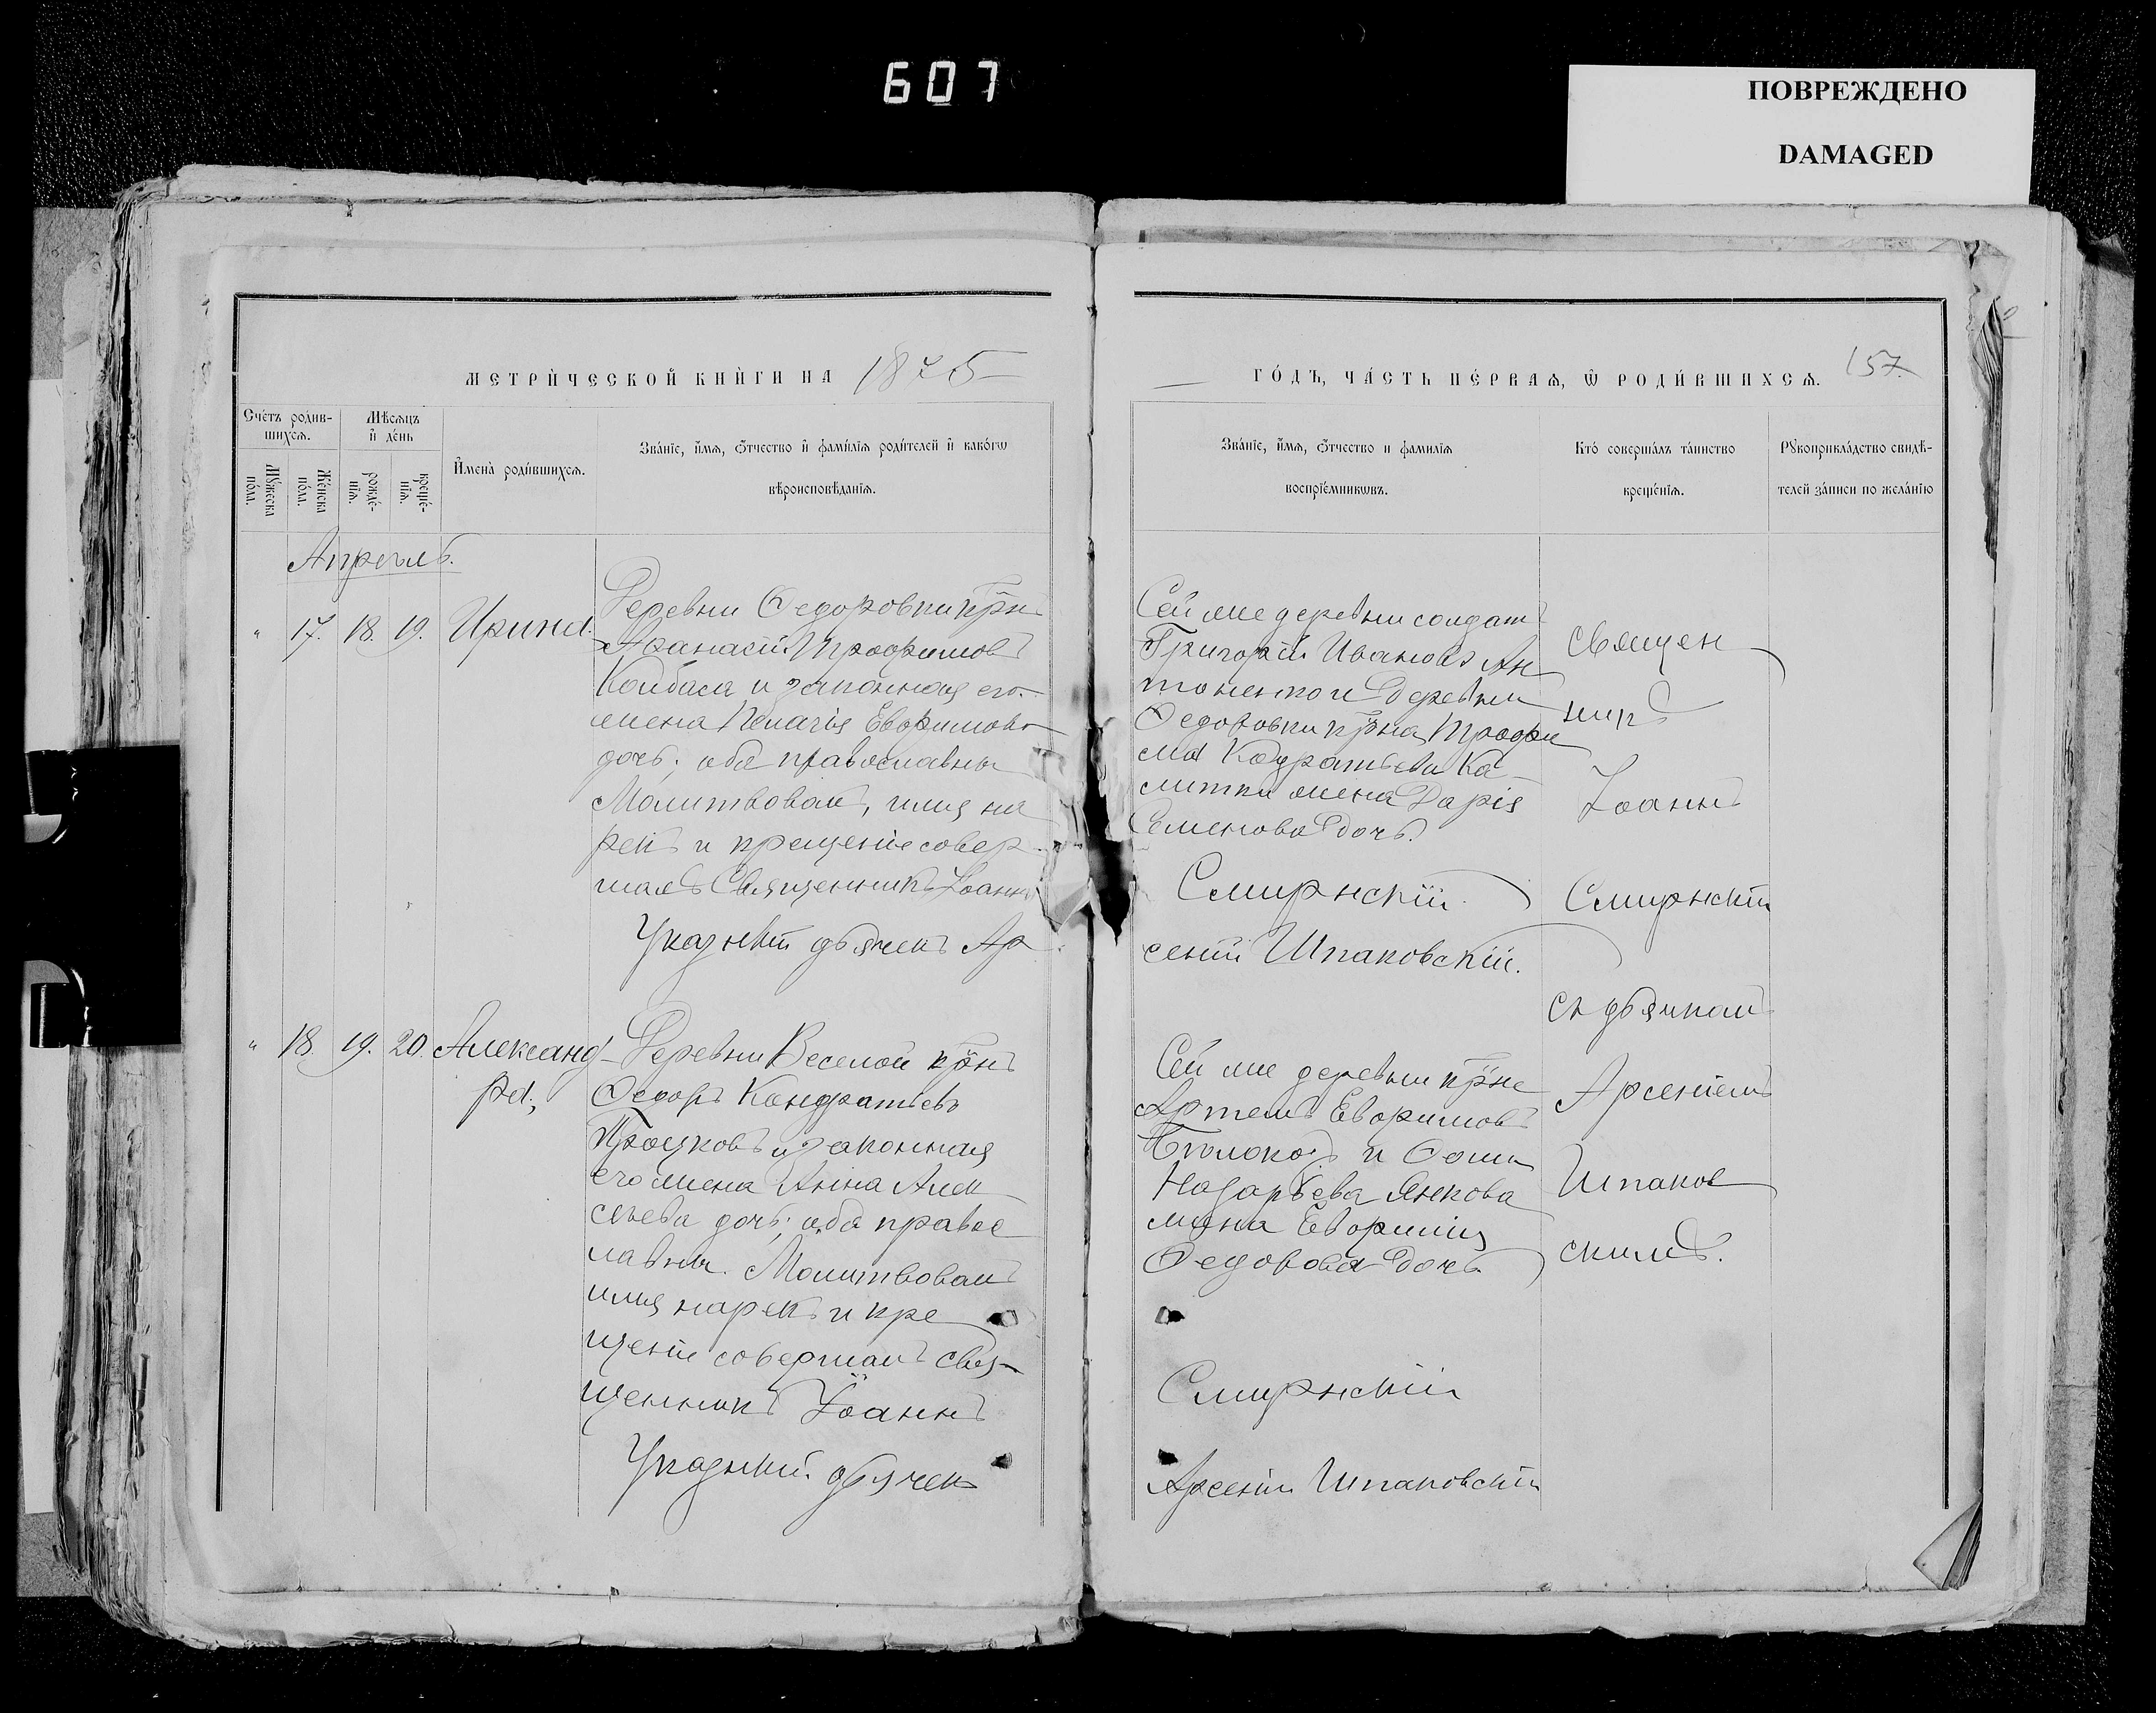 607
ПОВРЕЖДЕНО
DAMAGED
МЕТРИ́ЧЕСКОЙ КНИ́ГИ НА 1875
ГО́ДЪ, ЧА́СТЬ ПЕ́РВАѦ, Ѿ РОДИ́ВШИХСѦ.
157.
Сче́тъ роди́в-
шихсѧ.
Мѣ́сѧцъ
и҆ де́нь
Мꙋ́жеска
по́ла.
Же́нска
по́ла.
рожде́-
нїѧ.
креще́-
нїѧ.
И҆мена̀ роди́вшихсѧ.
Зва́нїе, и҆́мѧ, ѻ҆́тчество и҆ фами́лїѧ роди́телей и҆ како́гѡ
вѣроисповѣ́данїѧ.
Зва́нїе, и҆́мѧ, ѻ҆́тчество и фамилїѧ
воспрїе́мникѡвъ.
Кто́ соверша́лъ та́инство
креще́нїѧ.
Рꙋкоприкла́дство свидѣ́-
телей за́писи по жела́нїю
Апрѣль.
" 17. 18. 19. Ирина.
Деревни Ѳедоровки крн̃ъ
Аѳанасій Трофимовъ
Колбаса и законная его
жена Пелагія Евфимова
дочь; оба православны
Молитвовалъ, имя на
рекъ и крещеніе совер-
шалъ Священникъ Іоаннъ
Указный дьячекъ Ар
Сей же деревни солдатъ
Григорій Ивановъ Ан
тоненко и деревни
Ѳедоровки крн̃а Трофи
ма Кондратьева Ка-
литки жена Дарія
Семенова дочь.
Смирнскій
сеній Шпаковскій.
Священ
никъ
Іоаннъ
Смирнскій
съ дьячкомъ
Арсеніемъ
Шпаков
скимъ.
" 18. 19. 20. Александ-
ра;
Деревни Веселой крн̃ъ
Ѳедоръ Кондратьевъ
Процковъ и законная
его жена Анна Алек
сѣева дочь; оба правос
лавны. Молитвовалъ
имя нарекъ и кре
щеніе совершалъ свя-
щенникъ Іоаннъ
Указный дьячекъ
Сей же деревни крн̃е
Артемъ Евфимовъ
и Ѳомы
Назарьева Янкова
жена Евфимія
Ѳедорова дочь
Смирнскій
Арсеній Шпаковскій